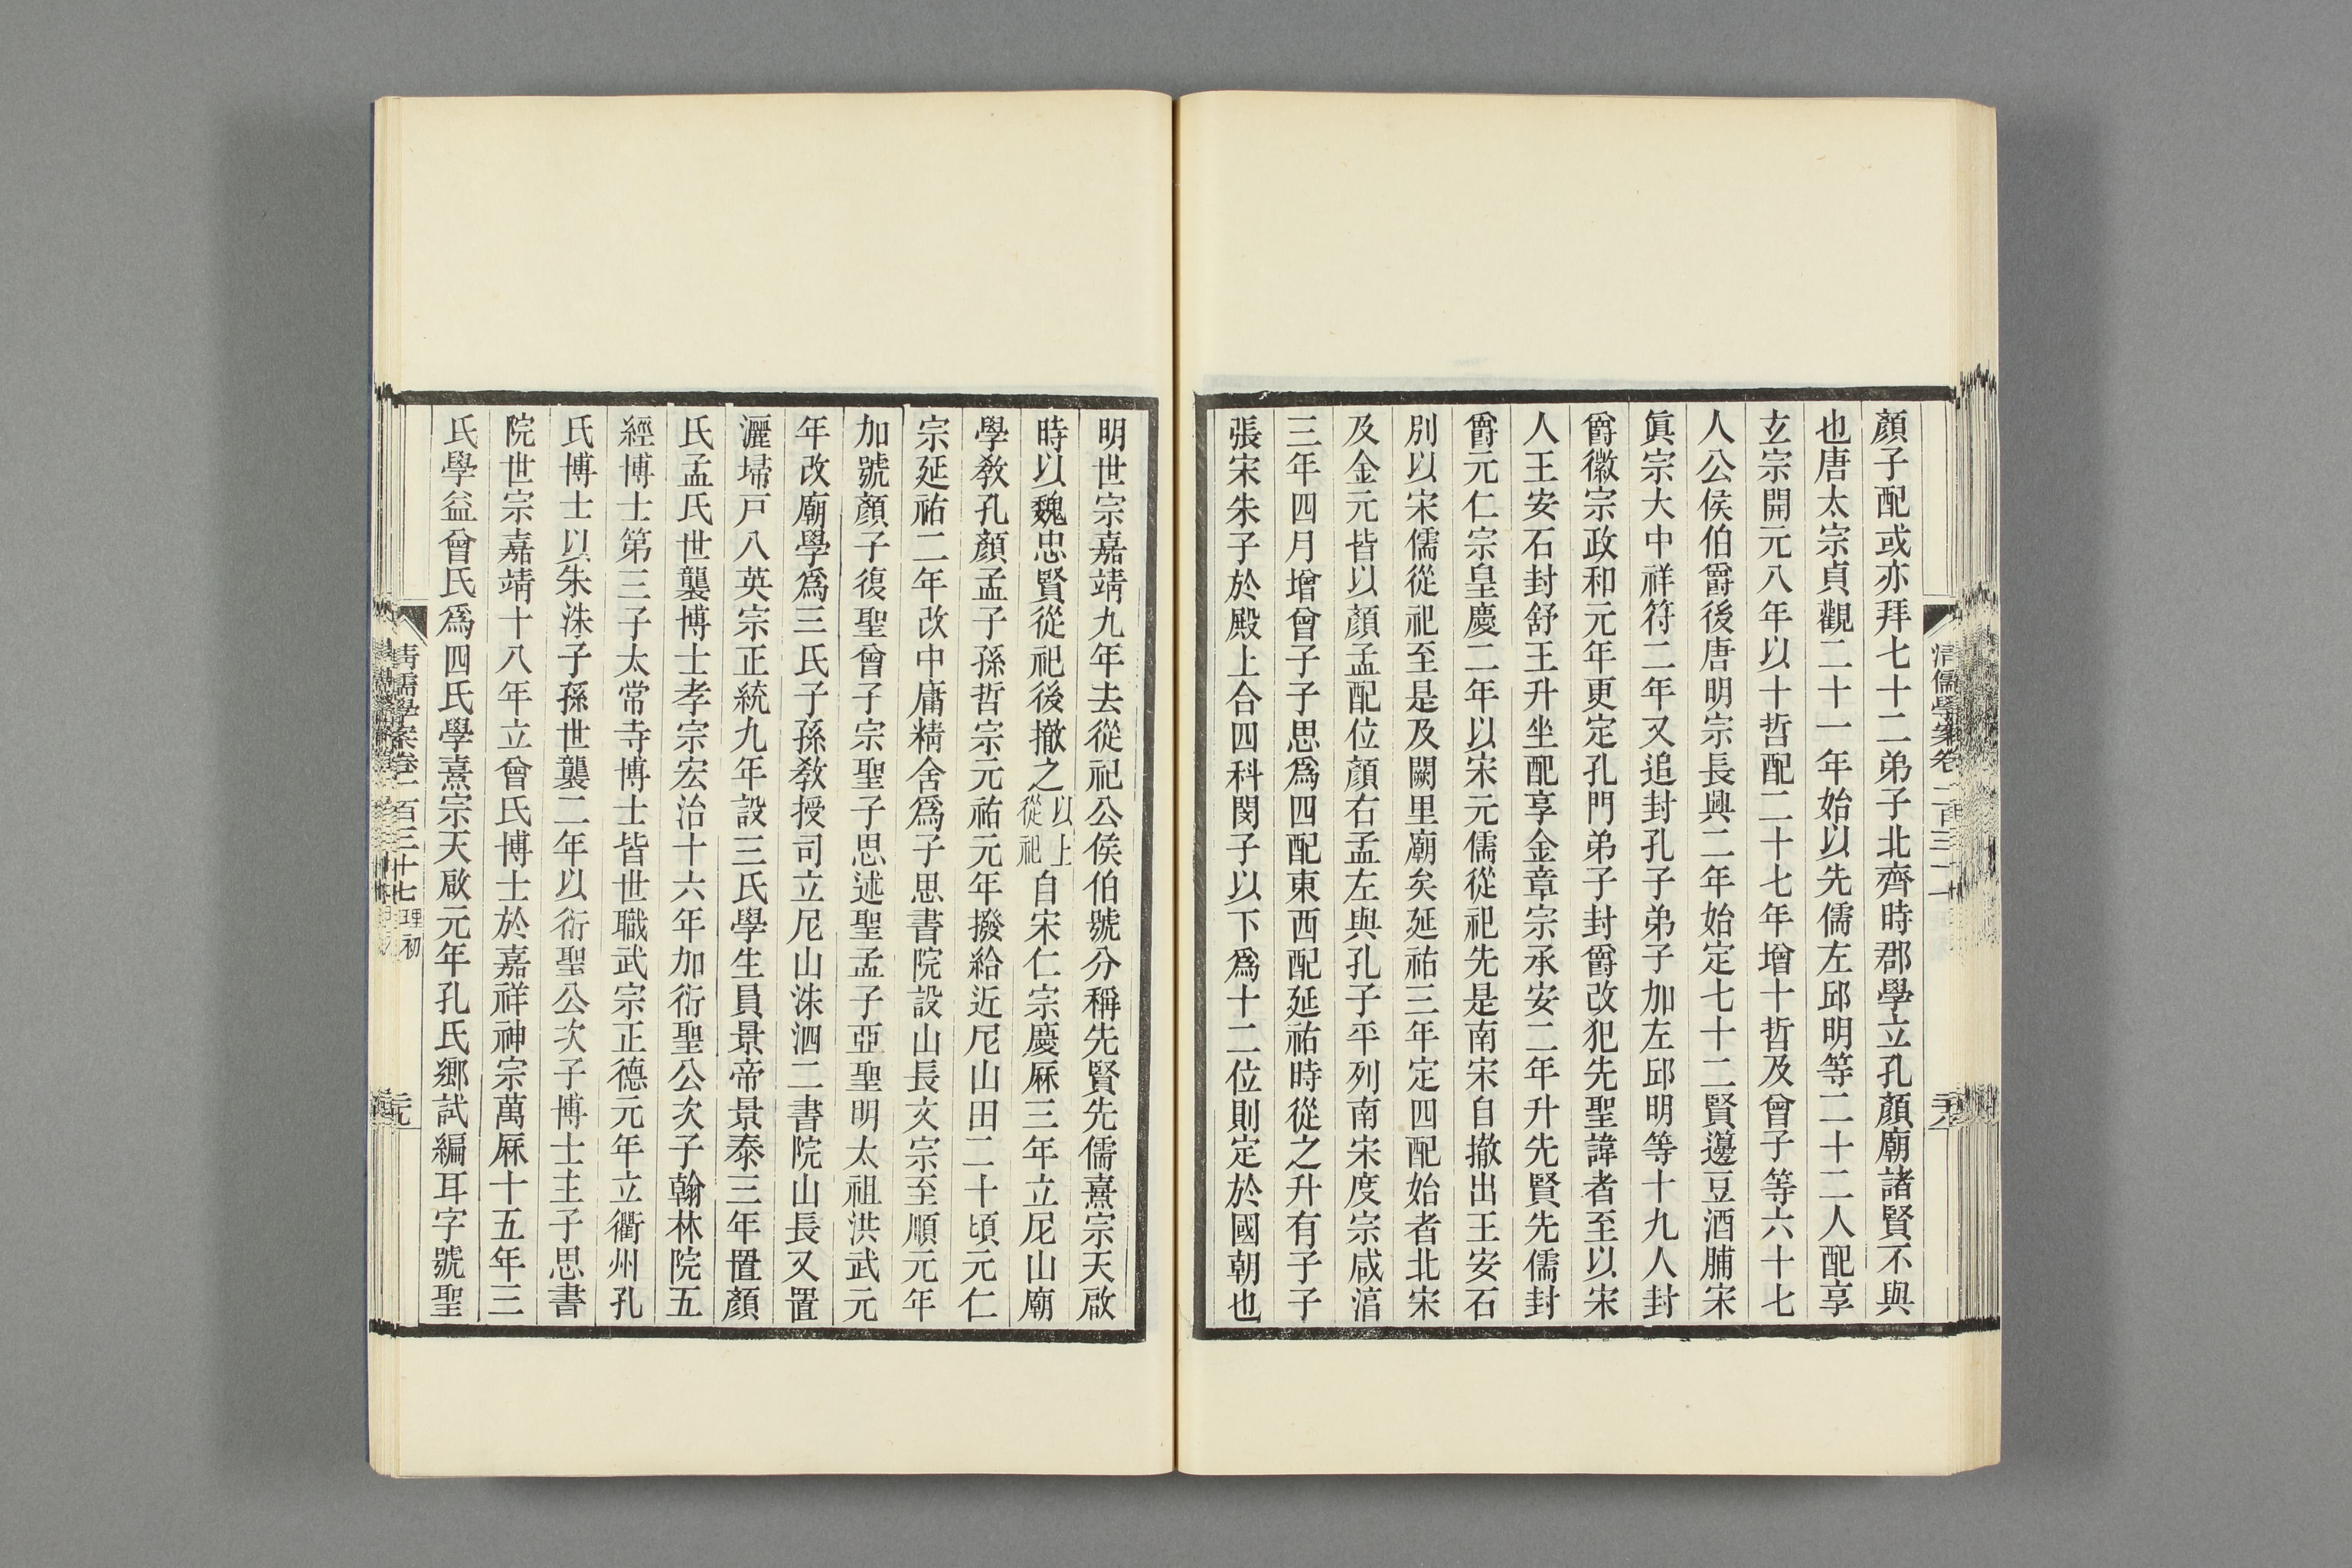 顏子配或亦拜七十二弟子北齊時郡學立孔顏廟諸賢不與
也唐太宗貞觀二十一年始以先儒左邱明等二十二人配享
玄宗開元八年以十哲配二十七年增十哲及曾子等六十七
人公侯伯爵後唐明宗長興二年始定七十二賢籩豆酒脯宋
眞宗大中祥符二年又追封孔子弟子加左邱明等十九人封
爵徽宗政和元年更定孔門弟子封爵改犯先聖諱者至以宋
人王安石封舒王升坐配享金章宗承安二年升先賢先儒封
爵元仁宗皇慶二年以宋元儒從祀先是南宋自撤出王安石
別以宋儒從祀至是及闕里廟矣延祐三年定四配始者北宋
及金元皆以顏孟配位顏右孟左與孔子平列南宋度宗咸淳
三年四月增曾子子思爲四配東西配延祐時從之升有子子
張宋朱子於殿上合四科閔子以下爲十二位則定於國朝也
明世宗嘉靖九年去從祀公侯伯號分稱先賢先儒熹宗天啟
時以魏忠賢從祀後撤之以上從祀自宋仁宗慶厤三年立尼山廟
學敎孔顏孟子孫哲宗元祐元年撥給近尼山田二十頃元仁
宗延祐二年改中庸精舍爲子思書院設山長文宗至順元年
加號顏子復聖曾子宗聖子思述聖孟子亞聖明太祖洪武元
年改廟學爲三氏子孫敎授司立尼山洙泗二書院山長又置
灑埽戸八英宗正統九年設三氏學生員景帝景泰三年置顏
氏孟氏世襲博士孝宗宏治十六年加衍聖公次子翰林院五
經博士第三子太常寺博士皆世職武宗正德元年立衢州孔
氏博士以朱洙子孫世襲二年以衍聖公次子博士主子思書
院世宗嘉靖十八年立曾氏博士於嘉祥神宗萬厤十五年三
氏學益曾氏爲四氏學熹宗天啟元年孔氏鄉試編耳字號聖
清儒學案卷一百三十七 理初